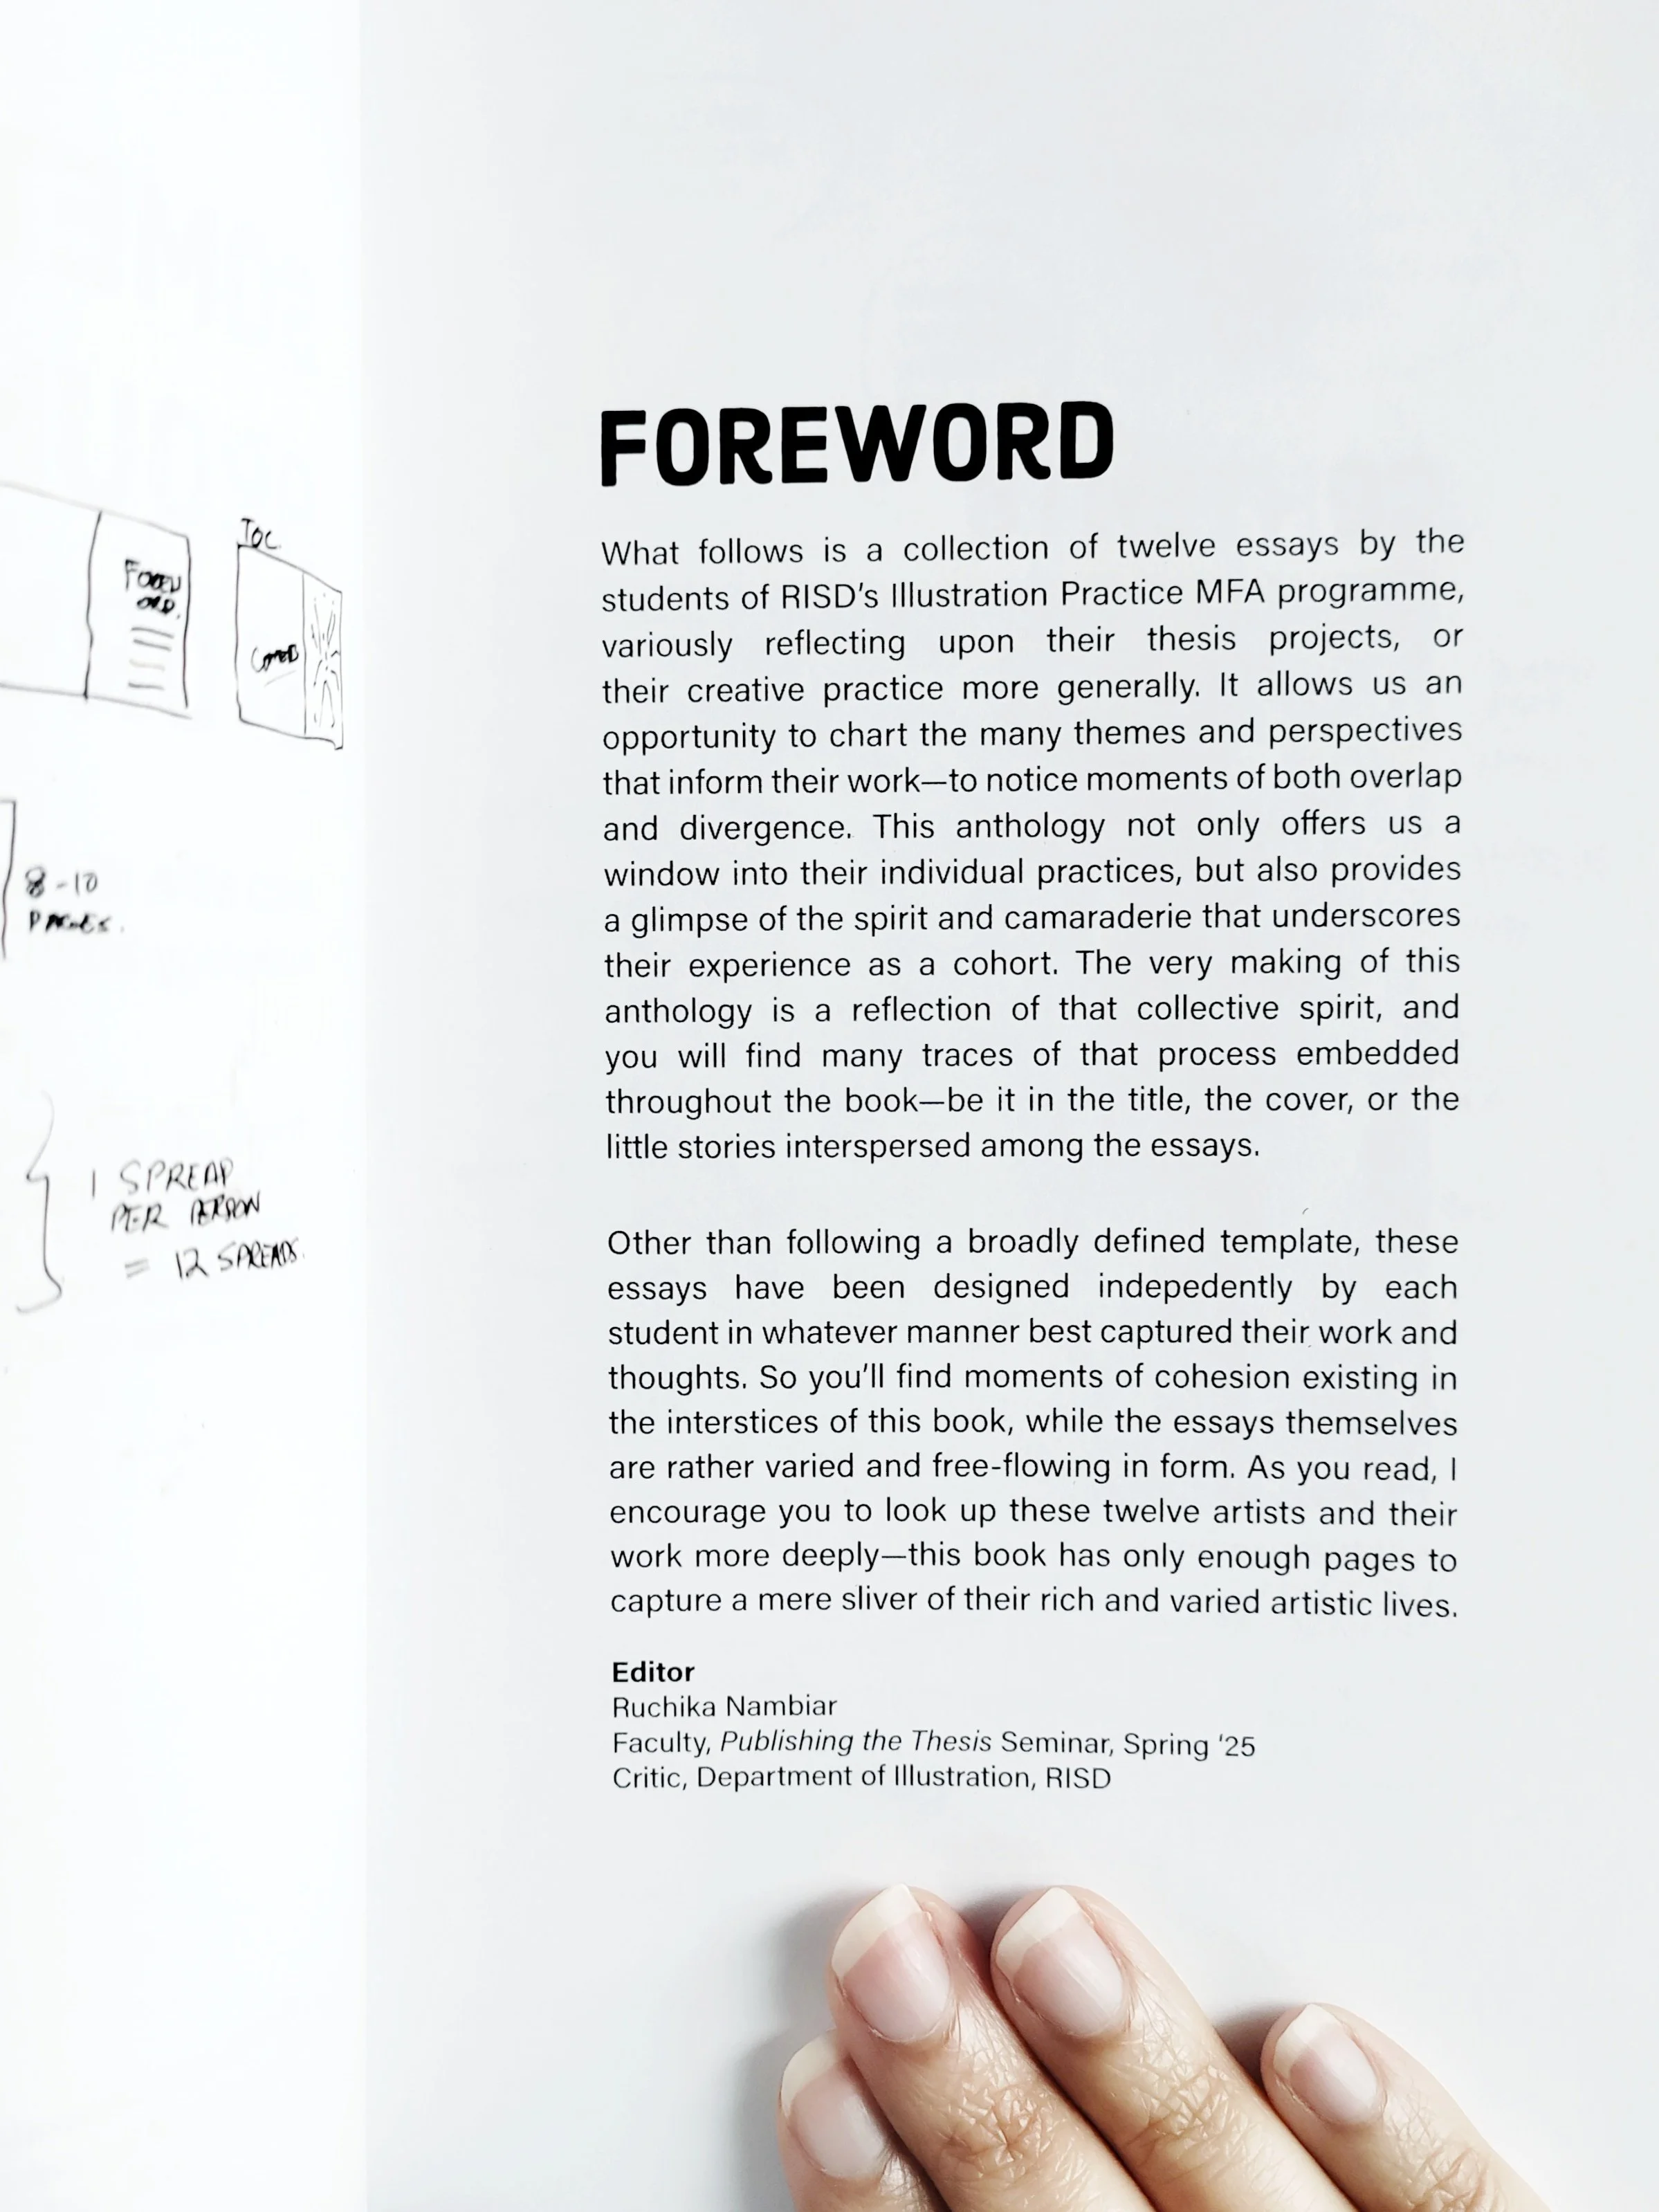 TOC
FOREW
ORD.
COMIC
8-10
PAGES.
1 SPREAD
PER PERSON
= 12 SPREADS.
FOREWORD
What follows is a collection of twelve essays by the
students of RISD's Illustration Practice MFA programme,
variously reflecting upon their thesis projects, or
their creative practice more generally. It allows us an
opportunity to chart the many themes and perspectives
that inform their work—to notice moments of both overlap
and divergence. This anthology not only offers us a
window into their individual practices, but also provides
a glimpse of the spirit and camaraderie that underscores
their experience as a cohort. The very making of this
anthology is a reflection of that collective spirit, and
you will find many traces of that process embedded
throughout the book—be it in the title, the cover, or the
little stories interspersed among the essays.
Other than following a broadly defined template, these
essays have been designed indepedently by each
student in whatever manner best captured their work and
thoughts. So you'll find moments of cohesion existing in
the interstices of this book, while the essays themselves
are rather varied and free-flowing in form. As you read, I
encourage you to look up these twelve artists and their
work more deeply—this book has only enough pages to
capture a mere sliver of their rich and varied artistic lives.
Editor
Ruchika Nambiar
Faculty, Publishing the Thesis Seminar, Spring '25
Critic, Department of Illustration, RISD